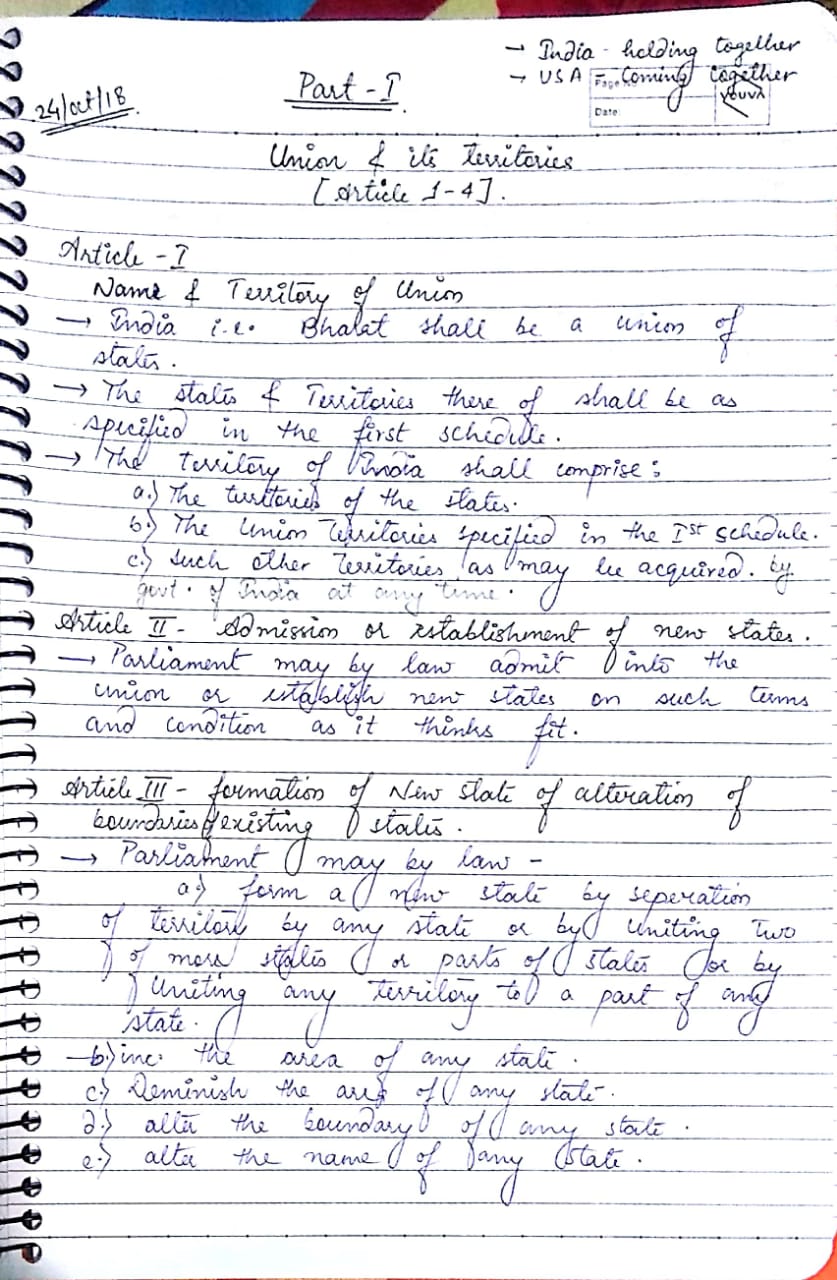 → India - holding together
→ USA - Coming together
Page No.
YOUVA
Date:
24/oct/18
Part - I
Union & its territories
[Article 1-4].
Article - I
Name & Territory of Union
→ India i.e. Bharat shall be a union of
states.
→ The states & Territories there of shall be as
specified in the first schedule.
→ The territory of India shall comprise:
a.) The turitories of the states.
b.) The Union Territories specified in the Ist schedule.
c.) such other Territories as may be acquired. by
govt. of India at any time.
Article II - Admission or establishment of new states.
→ Parliament may by law admit into the
union or establish new states on such terms
and condition as it thinks fit.
Article III - formation of New state of alteration of
boundaries of existing states.
→ Parliament may by law -
a.) form a new state by seperation
of territory by any state or by uniting two
of more states or parts of states or by
Uniting any territory to a part of any
state.
b.) inc. the area of any state.
c.) Deminish the area of any state.
d.) alter the boundary of any state.
e.) alter the name of any state.